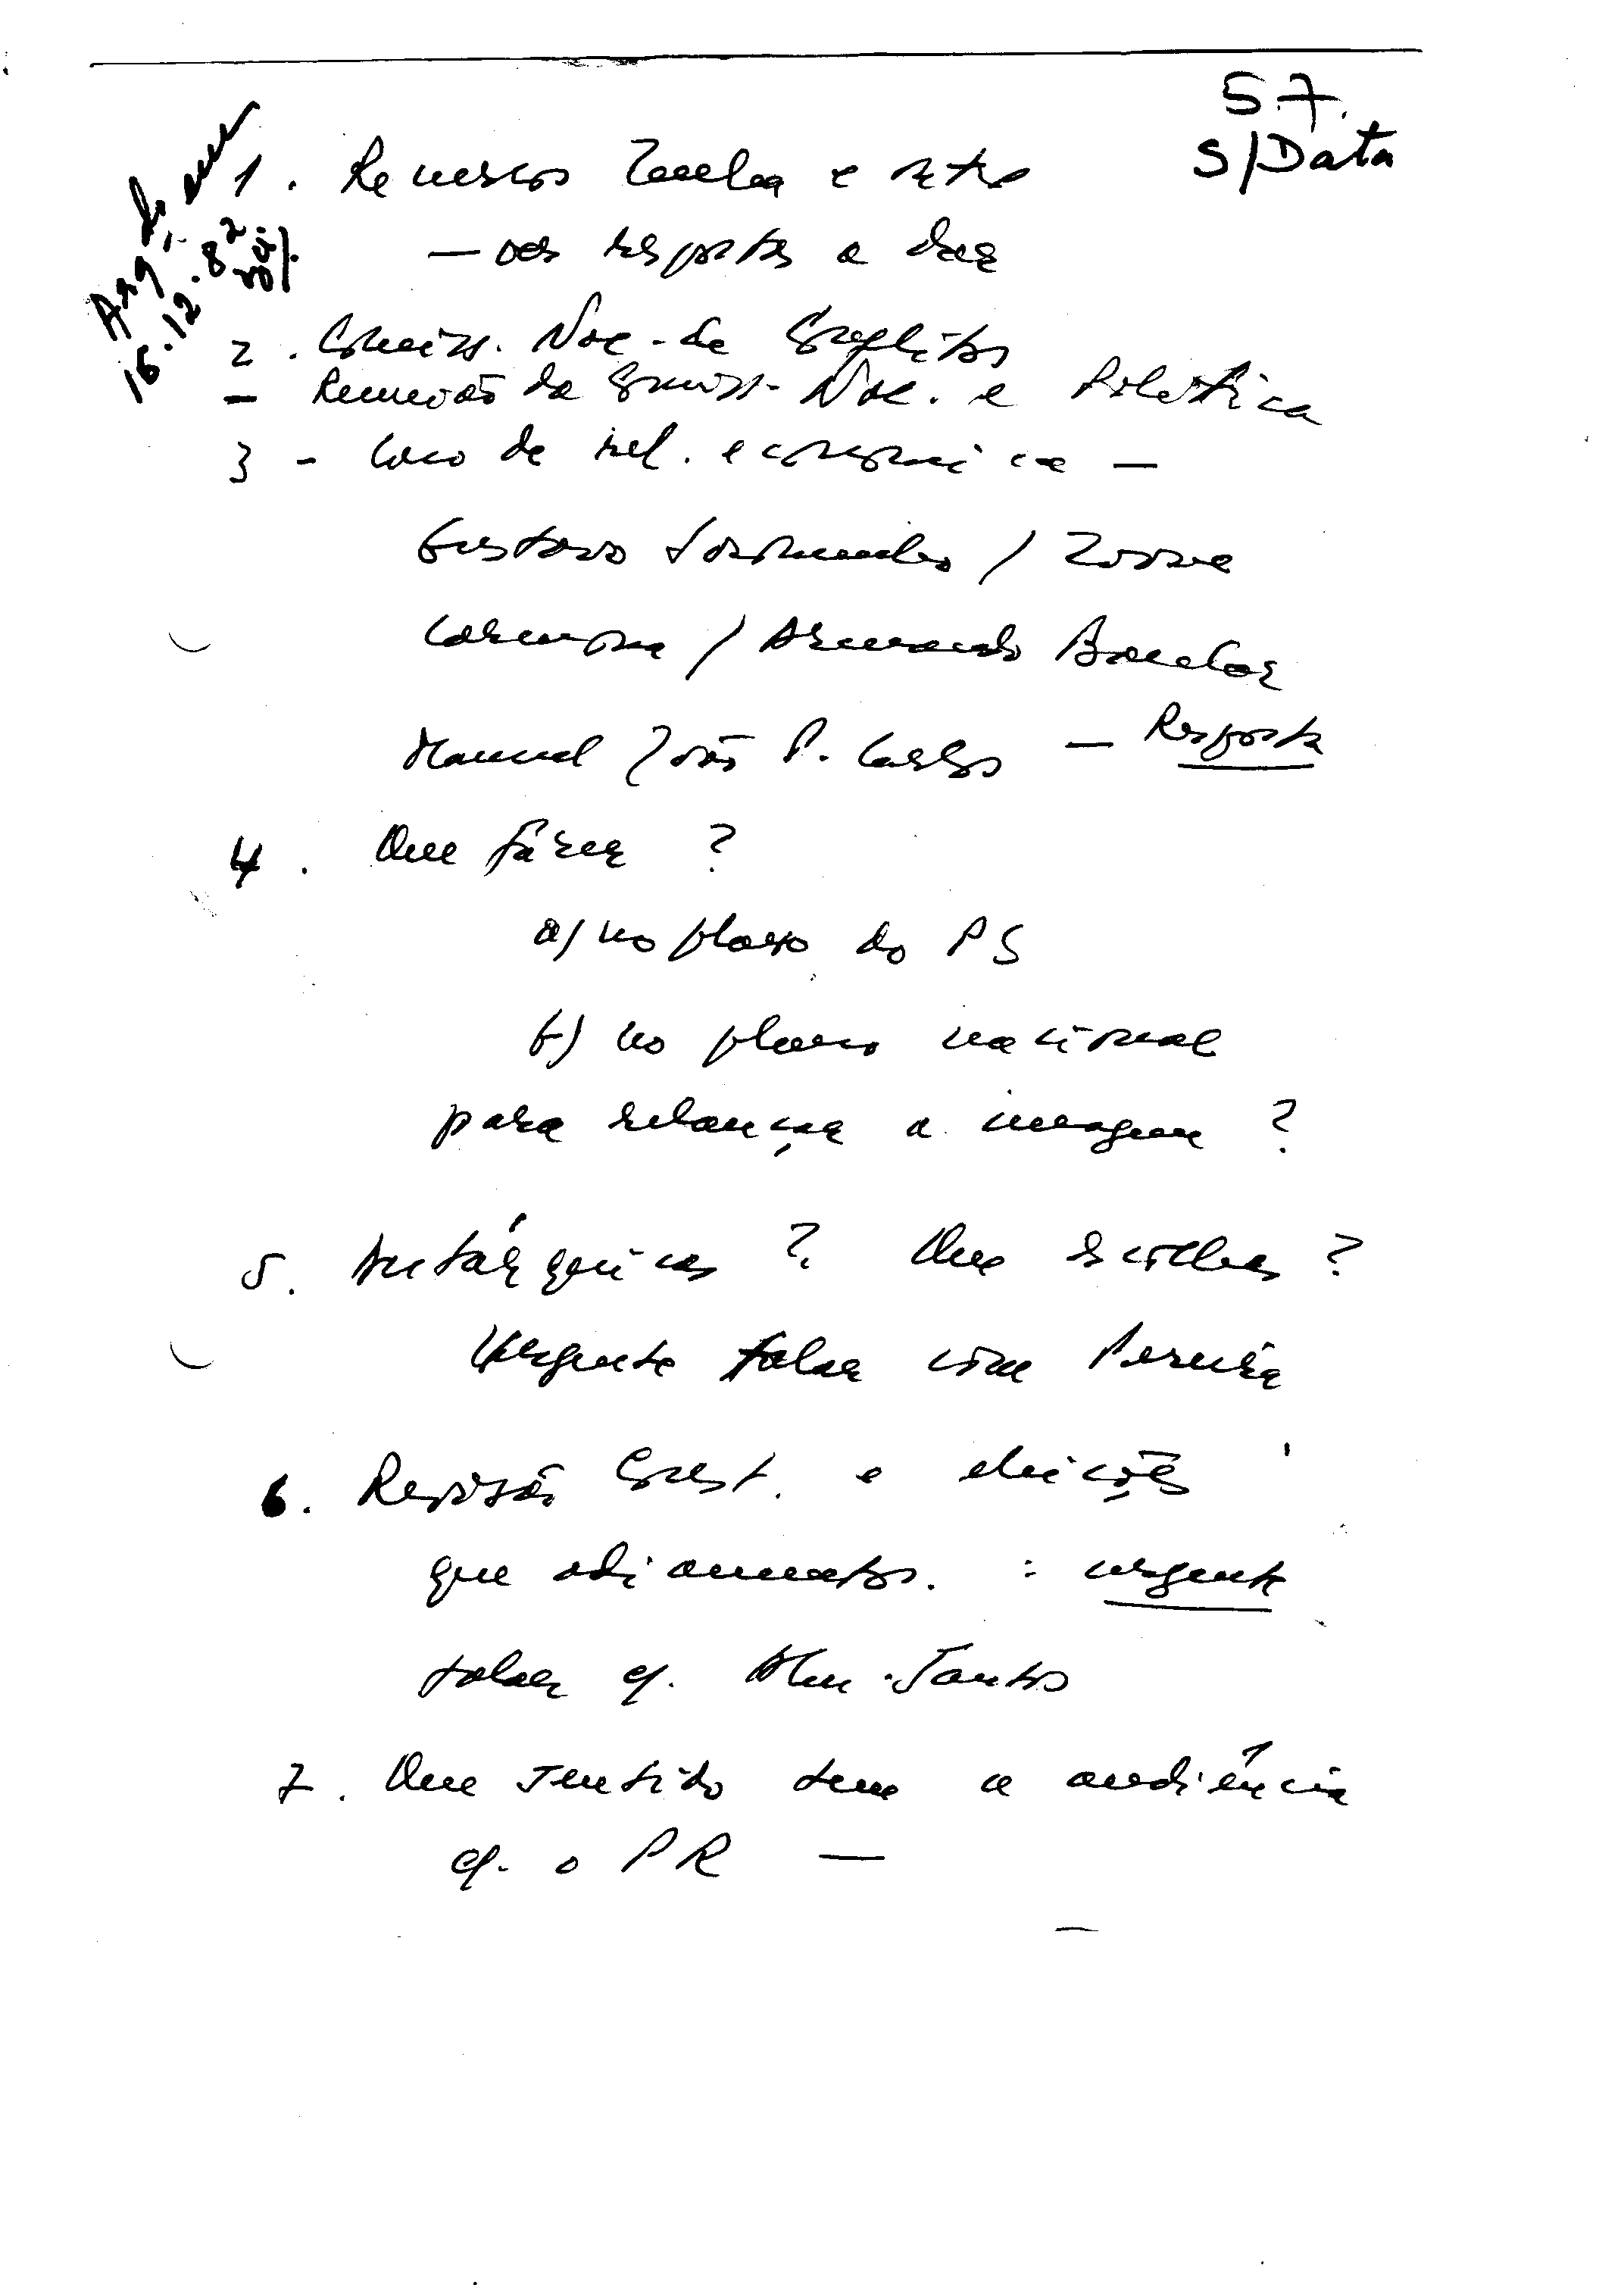 57.
S/Data
Arq.
16.12.82
1. Recursos Zenha e
— as respostas a dar
2. Comiss. Nac. de Conflitos
— Reunião da Comiss. Nac. e Política
3 - Caso de rel. económica —
Gustavo Soromenho /
/ Armando Bacelar
Manuel João P. — Resposta
4. Que fazer ?
a) no plano do PS
b) no plano nacional
para relançar a imagem ?
5. Autárquicas ? Que escolhas ?
Urgente falar com
6. Revisão Const. e eleições
que adiamentos. : urgente
falar c/. Alm. Santos
7. Que sentido tem a audiência
c/. o PR —